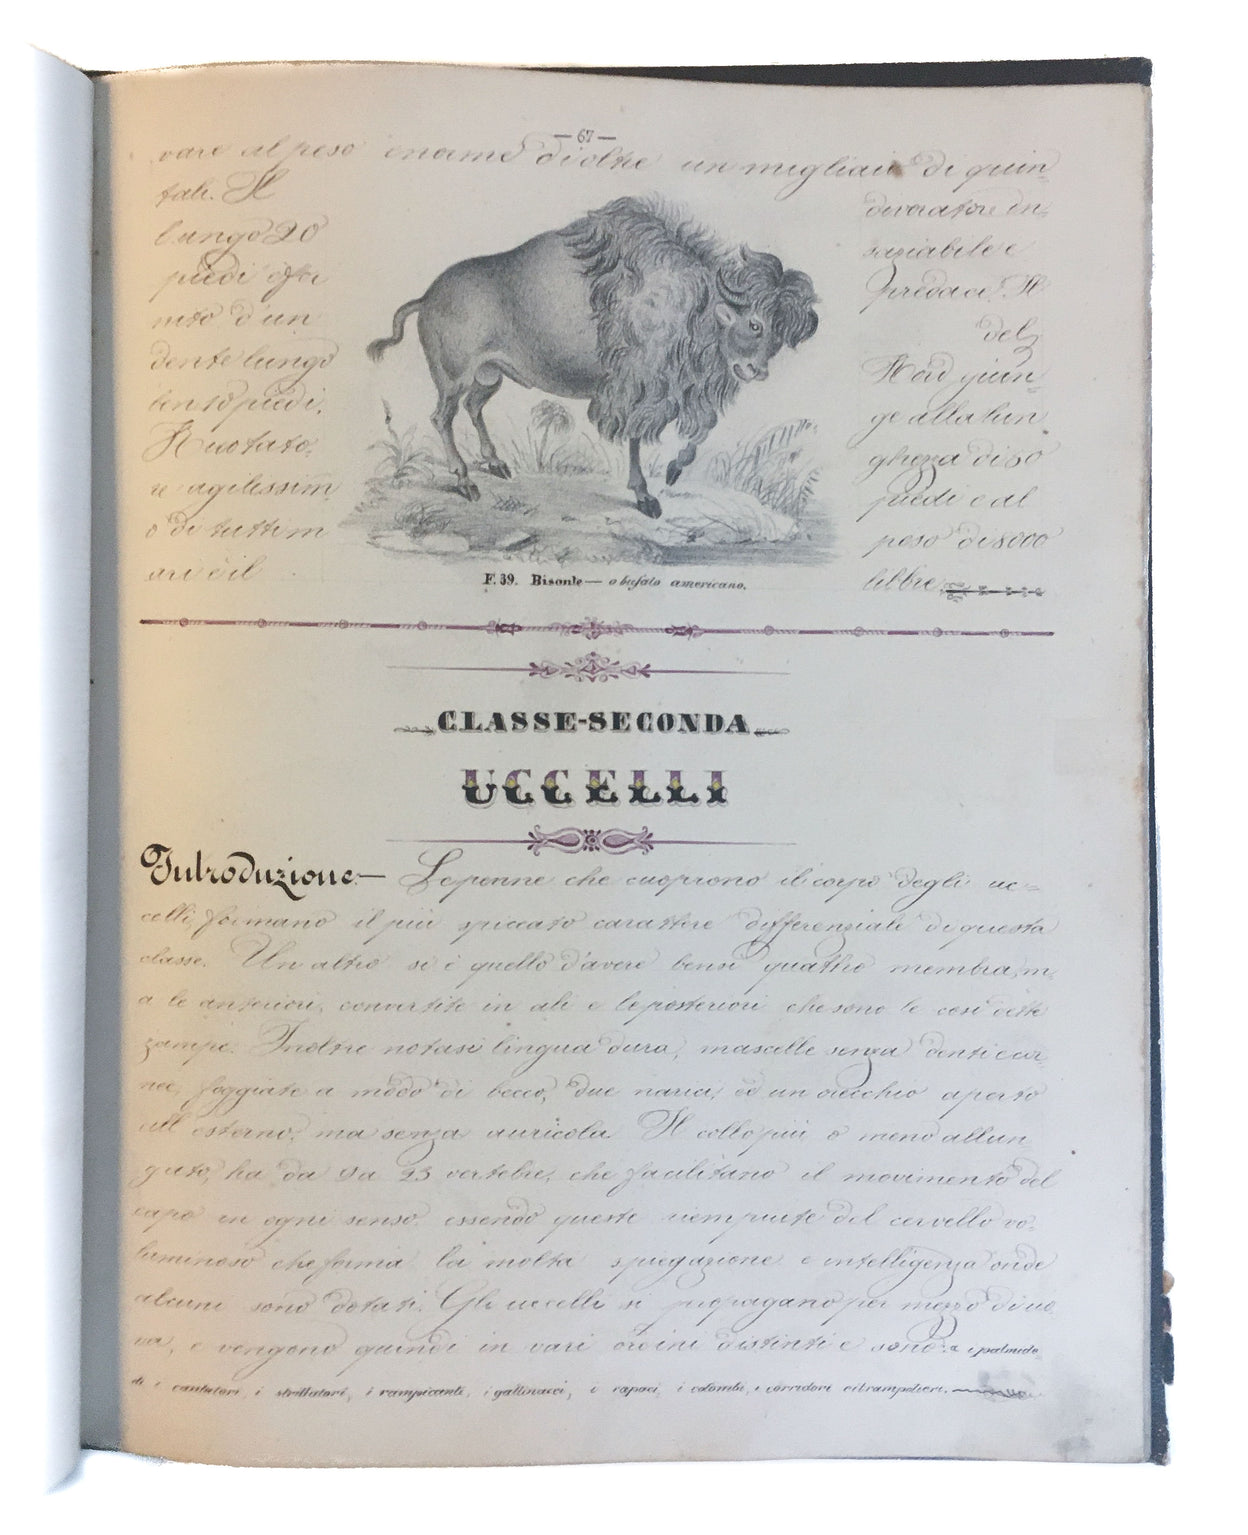 — 67 —
vare al peso enorme d'oltre un migliaio di quin=
tali. Il
lungo 20
piedi è for
nito d'un
dente lungo
ben 10 piedi.
Nuotato.
re agilissim
o di tutti i m
ari è il
divoratore in=
saziabile e
predace. Il
del=
giun=
ge alla lun
ghezza di 50
piedi e al
peso di 8000
libbre.
F. 39. Bisonte — o bufalo americano.
CLASSE-SECONDA
UCCELLI
Introduzione — Le penne che cuoprono il corpo degli uc=
celli, formano il più spiccato carattere differenziale di questa
classe. Un altro si è quello d'avere bensì quattro membra, m=
a le anteriori, convertite in ali e le posteriori che sono le così dette
zampe. Inoltre notasi lingua dura, mascelle senza denti e cor=
nee, foggiate a modo di becco, due narici, ed un orecchio aperto
all'esterno, ma senza auricola. Il collo più o meno allun
gato, ha da 9 a 23 vertebre, che facilitano il movimento del
capo in ogni senso, essendo queste riempiute del cervello vo=
luminoso che forma la molta spiegazione e intelligenza onde
alcuni sono dotati. Gli uccelli si propagano per mezzo di uo
va, e vengono quindi in vari ordini distinti e sono: i palmide
di i cantatori, i strillatori, i rampicanti, i gallinacci, i rapaci, i colombi, i corridori e i trampolieri.